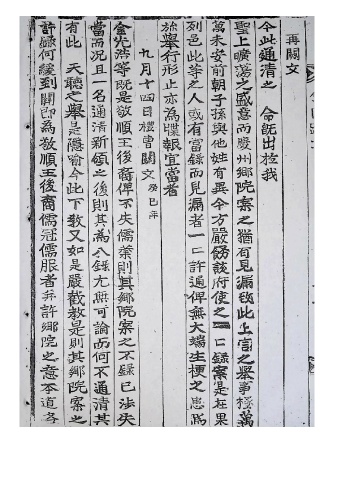 再關文
令此通清之 命旣出於我
聖上曠蕩之盛意而慶州鄉院案之猶有見漏致此上言之擧事極萬
萬未安前朝子孫與他姓有異今方嚴飭該府使之一一錄案是在果
列邑此等之人或有當錄而見漏者一一許通俾無大端生梗之患爲
於擧行形止亦爲牒報宜當者
九月十四日禮曹關文
金光 等旣是敬順王後裔俾不失儒業則其鄉院案之不錄已涉失
當而況且一名通清新頒之後則其爲入錄尤無可論而何不通清其
有此 天聽之擧是隱喩今此下敎又如是嚴截敎是則其鄉院案之
許錄何 到關卽爲敬順王後裔儒冠儒服者幷許鄉院之意本道各